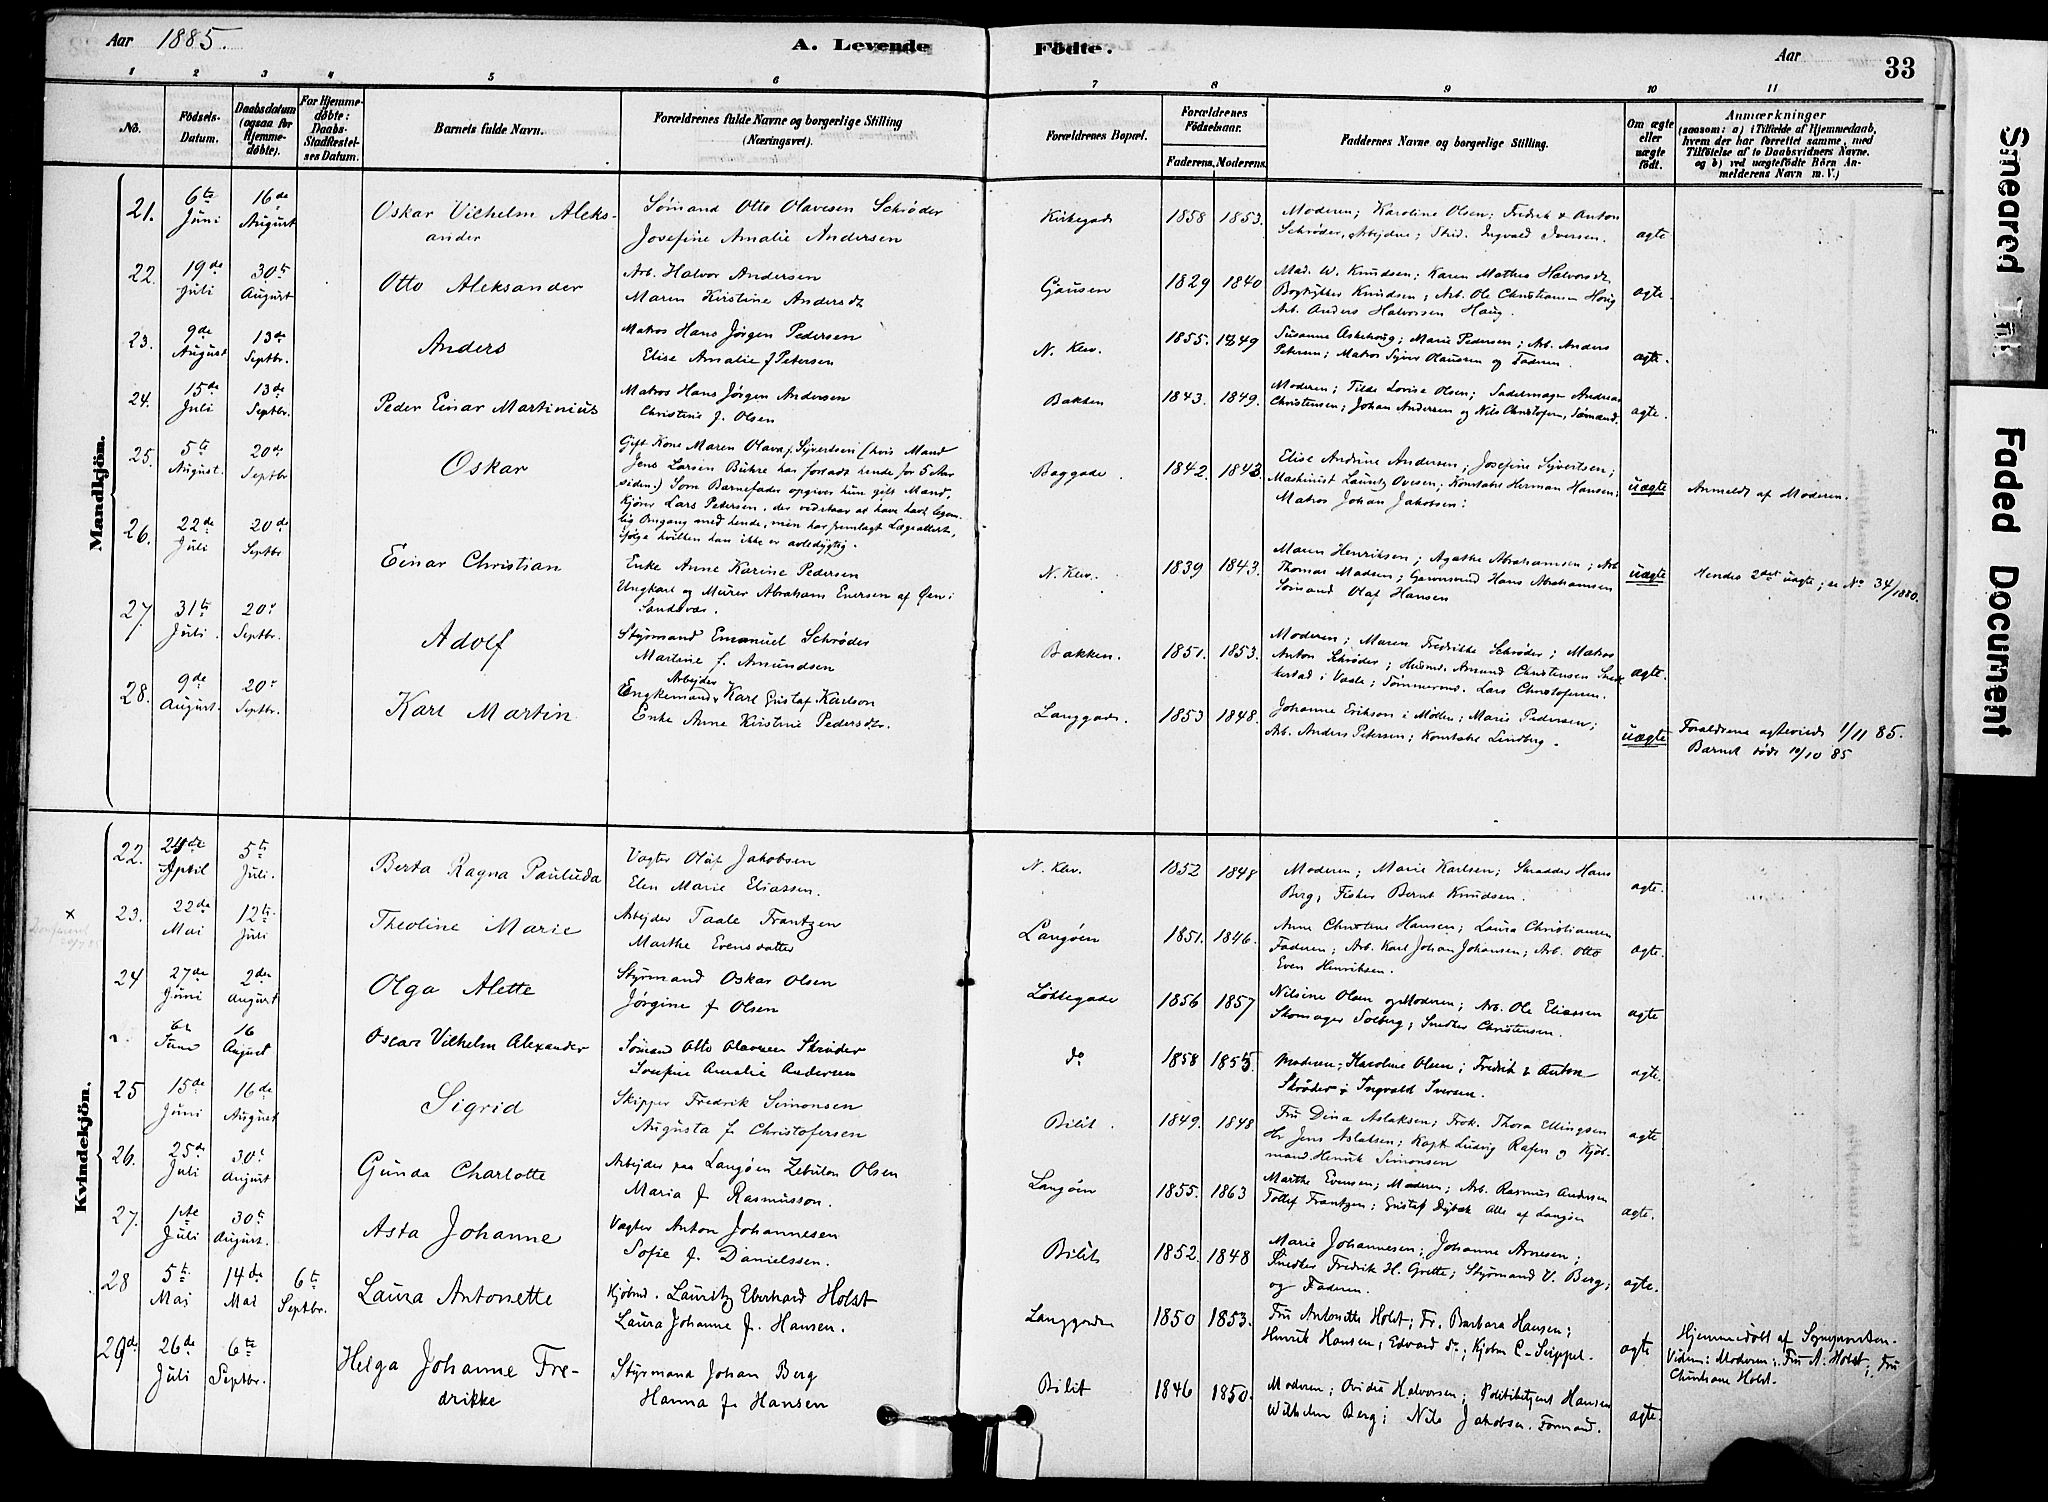 Aar 1885.
A. Levende Födte.
Aar
33
1 2 3 4 5 6 7 8 9 10 11
No.
Födsels-
Datum.
Daabsdatum
(ogsaa for
Hjemme-
døbte).
For Hjemme-
døbte:
Daabs-
Stadfæstel-
ses Datum.
Barnets fulde Navn.
Forældrenes fulde Navne og borgerlige Stilling
(Næringsvei).
Forældrenes Bopæl.
Forældrenes
Födselsaar.
Faderens. Moderens.
Faddernes Navne og borgerlige Stilling.
Om ægte
eller
uægte
født.
Anmærkninger
(saasom: a) i Tilfælde af Hjemmedaab,
hvem der har forrettet samme, med
Tilföielse af to Daabsvidners Navne,
og b) ved uægtefödte Börn An-
melderens Navn m. V.)
Mandkjön.
21. 6te Juni 16de August
Oskar Vilhelm Aleks-
ander
Sømand Otto Olavesen Schrøder
Josefine Amalie Andersen
Kirkegade 1858 1853.
Moderen; Karoline Olsen; Fredrik & Anton
Schrøder, Arbejdere; Skrid. Ingvald Iversen.
ægte
22. 19de Juli 30te August
Otto Aleksander
Arb. Halvor Andersen
Maren Kirstine Andersdt
Gausen 1829 1840
Mad. W. Knudsen; Karen Mathea Halvorsdt.
Bogtykker Knudsen; Arb. Ole Christiansen Houg
Arb. Anders Halvorsen Haug.
ægte.
23. 9de August 13de Septbr.
Anders
Matros Hans Jørgen Pedersen
Elise Amalie f Petersen
N. Klev. 1855. 1849
Susanne Askehoug; Marie Pedersen; Arb. Anders
Petersen; Matros Syver Olausen og Faderen.
ægte.
24. 15de Juli 13de Septbr.
Peder Einar Martinius
Matros Hans Jørgen Andersen
Christine f. Olsen
Bakken 1843. 1849.
Moderen; Tilda Lovise Olsen; Sadelmager Andreas
Christensen; Johan Andersen og Nils Christofersen, Sømænd.
ægte.
25. 5te August. 20de Septbr
Oskar
Gift Kone Maren Olava f. Syvertsen (hvis Mand
Jens Larsen Buhre har forladt hende for 5 Aar
siden.) Som Barnefader opgiver hun gift Mand,
Kjører Lars Petersen, der vedstaar at have havt legem-
lig Omgang med hende, men har fremlagt Lægeattest,
ifølge hvilken han ikke er avledygtig.
Baggade. 1842. 1843.
Elise Andrine Andersen; Josefine Syvertsen;
Maskinist Lauritz Ovesen; Konstabel Herman Hansen;
Matros Johan Jakobsen:
uægte
Anmeldt af Moderen.
26. 22de Juli 20de Septbr
Einar Christian
Enke Anne Karine Pedersen
Ungkarl og Murer Abraham Evensen af Øen i
Sandsvær.
N. Klev. 1839 1843.
Maren Henriksen; Agathe Abrahamsen; Arb.
Thomas Madsen; Hans Abrahamsen
Sømand Olaf Hansen
uægte
Hendes 2det uægte; se No 34/1880.
27. 31te Juli. 20' Septbr.
Adolf
Styrmand Emanuel Schrøder
Martine f. Amundsen
Bakken. 1851. 1853.
Moderen; Maren Fredrikke Schrøder; Matros
Anton Schrøder; Husmd. Amund Christensen
i Vaale; Tømmermd. Lars Christofersen.
ægte.
28. 9de August. 20' Septbr.
Karl Martin
Arbejder
Enkemand, Karl Gustaf Karlson
Enke Anne Kirstine Pedersdtr.
Langgade. 1853 1848.
Johanne Erikson i Mollen; Marie Pedersen;
Arb. Anders Petersen; Konstabel Lindberg.
uægte
Forældrene ægteviede 1/11 85.
Barnet døde 10/10 85
Kvindekjön.
22. April 5te Juli.
Berta Ragna Paulida
Vagter Olaf Jakobsen
Elen Marie Eliassen.
N. Klev. 1852 1848
Moderen; Marie Karlsen; Skrædder Hans
Berg; Fisker Bernt Knudsen.
ægte.
x
23. 22de Mai 12te Juli
Theoline Marie
Arbejder Taale Frantzen
Marthe Evensdatter
Langøen 1851. 1846.
Anne Christine Hansen; Laura Christiansen
Faderen; Arb. Karl Johan Johansen; Arb. Otto
Even Henriksen.
ægte.
24 27de Juni 2den August
Olga Alette
Styrmand Oskar Olsen
Jørgine f Olsen
Løkkegade 1856 1857
Nilsine Olsen og Moderen; Arb. Ole Eliassen
Skomager Solberg; Snedker Christensen.
ægte
6te Juni 16 August
Oscar Vilhelm Alexander
Sømand Otto Olavesen Skrøder
Josefine Amalie Andersen
do 1858 1853.
Moderen; Karoline Olsen; Fredrik & Anton
Skrøder; Ingvald Iversen.
ægte.
25 15de Juni 16de August
Sigrid
Skipper Fredrik Simonsen
Augusta f. Christofersen
Bilit. 1849. 1848
Fru Dina Aslaksen; Frøk. Thora Ellingsen
Hr Jens Aslaksen; Kapt. Ludvig Rafen og Kjøb-
mand Henrik Simonsen
ægte
26. 25de Juli 30' August
Gunda Charlotte
Arbejder paa Langøen Zebulon Olsen
Maria f. Rasmusson.
Langøen 1855. 1863
Marthe Evensen; Moderen; Arb. Rasmus Andersen
Tollef Frantzen; Gustaf Dybek Alle af Langøen
ægte.
27. 1ste Juli 30te August.
Asta Johanne
Vagter Anton Johannesen
Sofie f. Danielssen.
Bilit 1852. 1848
Marie Johannesen; Johanne Arnesen;
Snedker Fredrik H. Grette; Styrmand V. Berg;
og Faderen.
ægte.
28 5te Mai 14de Mai 6te Septbr.
Laura Antonette
Kjøbmd. Lauritz Eberhard Holst
Laura Johanne f. Hansen.
Langgaden 1850 1853.
Fru Antonette Holst; Fr. Barbara Hansen;
Henrik Hansen; Edvard do; Kjøbm C. Seippel.
ægte
Hjemmedøbt af Sognepresten.
Vidner: Moderen; Fru A. Holst; Fru
Christiane Holst.
29de 26de Juli 6te Septbr.
Helga Johanne Fre-
drikke
Styrmand Johan Berg
Hanna f. Hansen
Bilit 1846 1850.
Moderen; Ovidia Halvorsen; Politibetjent Hansen
Wilhelm Berg; Nils Jakobsen. Formand.
ægte.
Smeared Ink
Faded Document